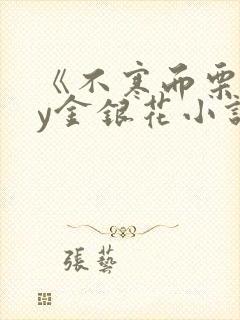 《不寒而栗
y金银花小说
張藝